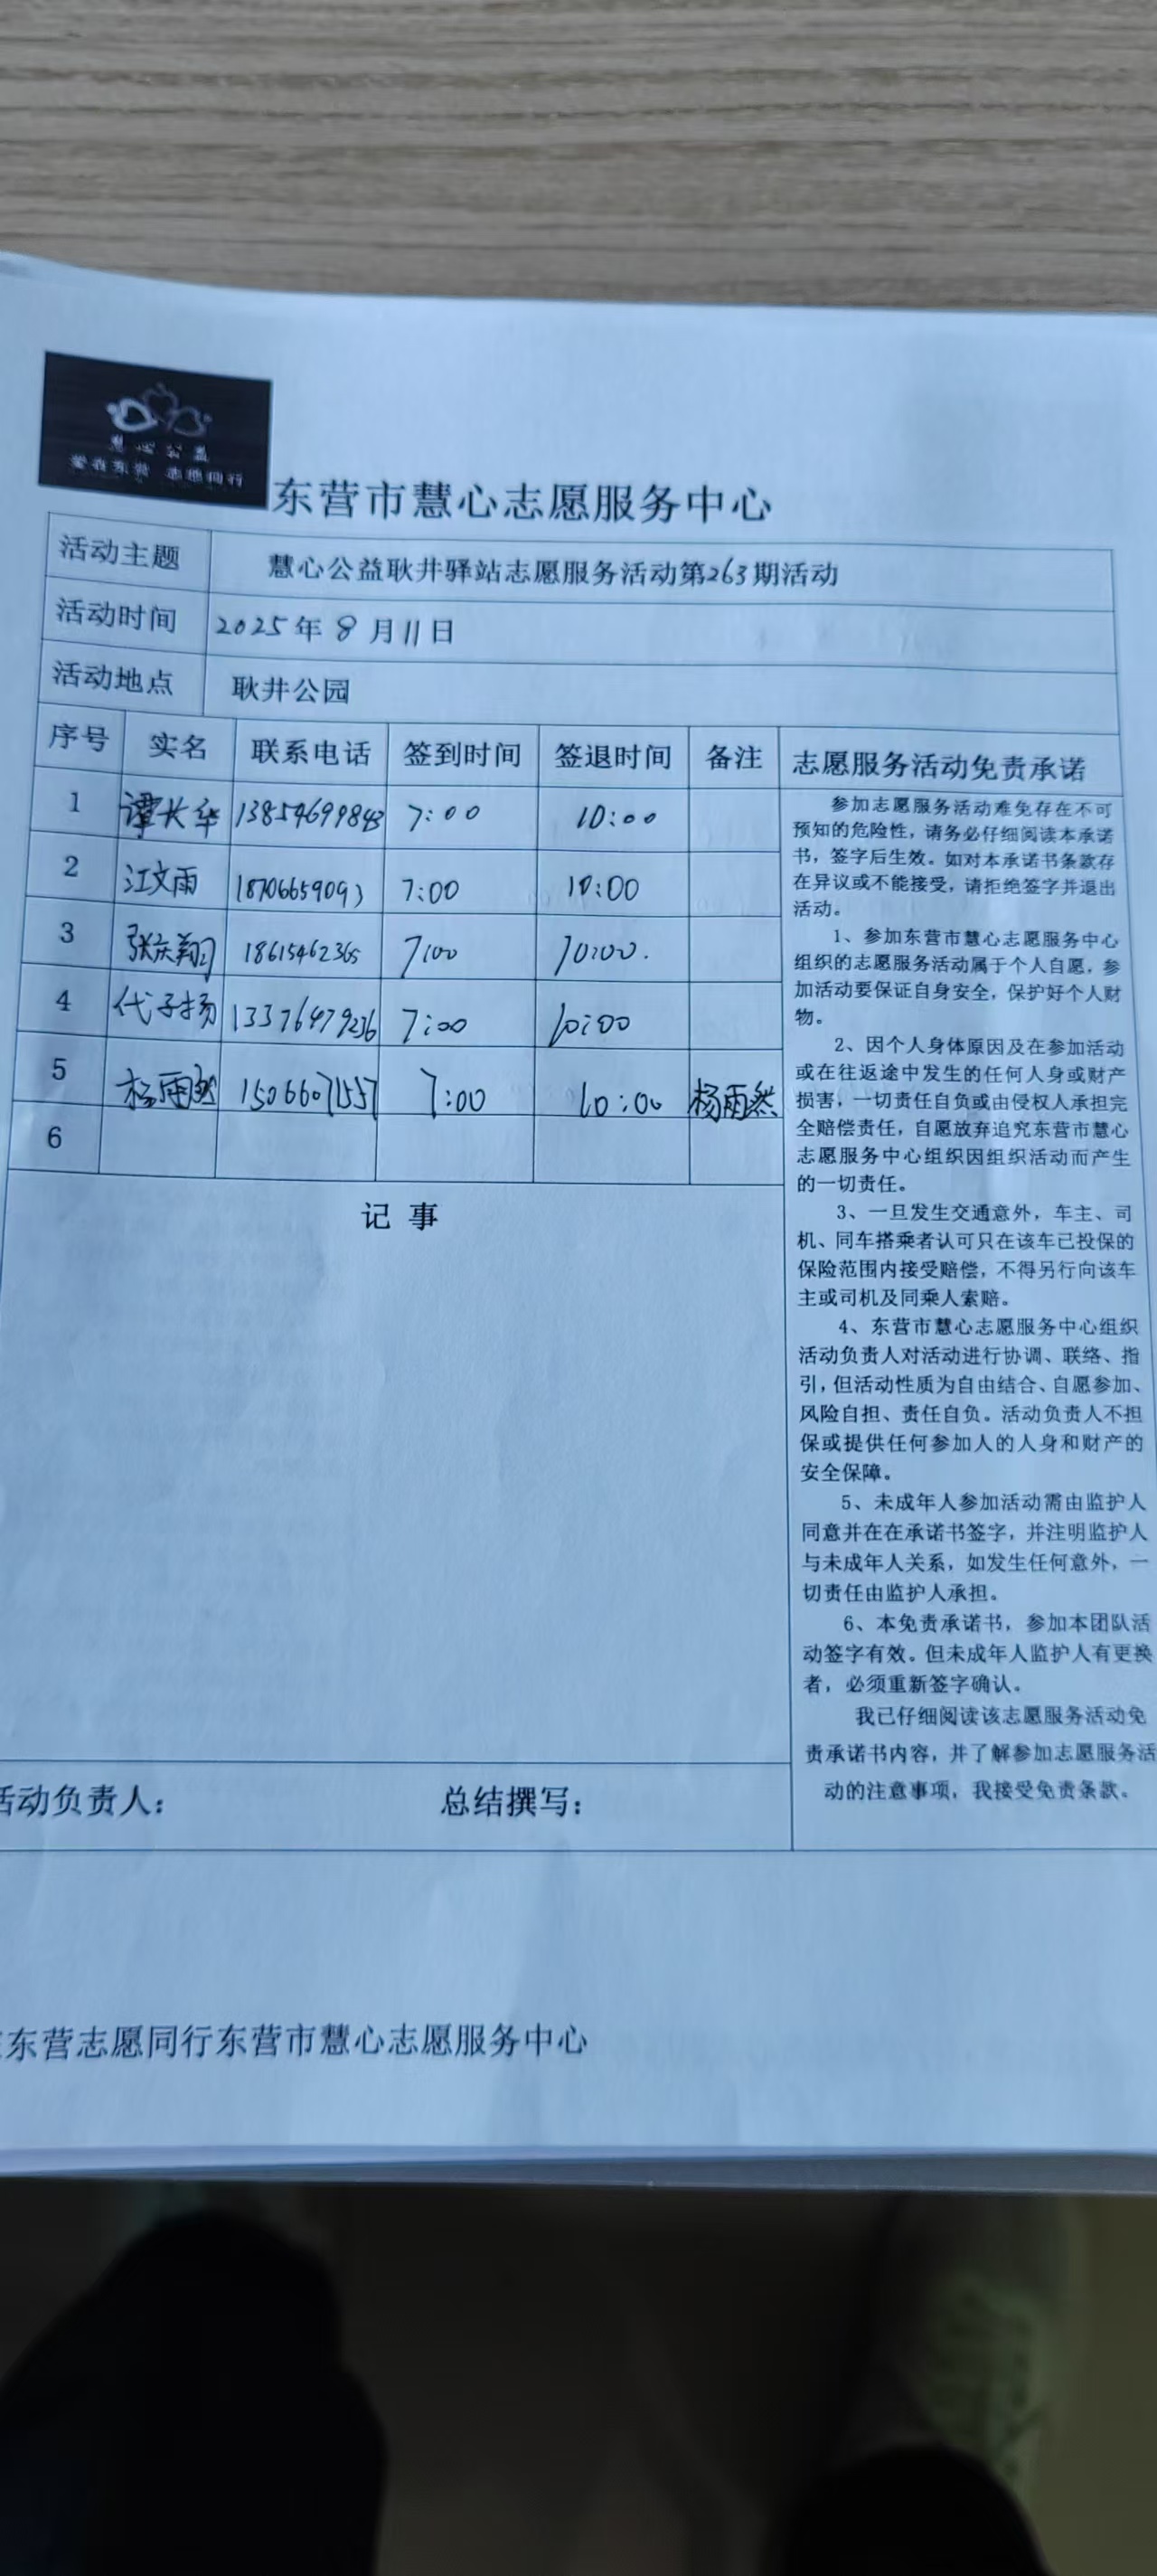 慧心公益
爱在东营 志愿同行
东营市慧心志愿服务中心
活动主题 慧心公益耿井驿站志愿服务活动第263期活动
活动时间 2025年8月11日
活动地点 耿井公园
序号 实名 联系电话 签到时间 签退时间 备注
1 谭长华 13854699843 7:00 10:00
2 江文雨 18706659093 7:00 10:00
3 张庆翔 18615462365 7:00 10:00.
4 代子扬 13376479236 7:00 10:00
5 杨雨然 15066071557 7:00 10:00 杨雨然
6
记 事
活动负责人： 总结撰写：
志愿服务活动免责承诺
参加志愿服务活动难免存在不可
预知的危险性，请务必仔细阅读本承诺
书，签字后生效。如对本承诺书条款存
在异议或不能接受，请拒绝签字并退出
活动。
1、参加东营市慧心志愿服务中心
组织的志愿服务活动属于个人自愿，参
加活动要保证自身安全，保护好个人财
物。
2、因个人身体原因及在参加活动
或在往返途中发生的任何人身或财产
损害，一切责任自负或由侵权人承担完
全赔偿责任，自愿放弃追究东营市慧心
志愿服务中心组织因组织活动而产生
的一切责任。
3、一旦发生交通意外，车主、司
机、同车搭乘者认可只在该车已投保的
保险范围内接受赔偿，不得另行向该车
主或司机及同乘人索赔。
4、东营市慧心志愿服务中心组织
活动负责人对活动进行协调、联络、指
引，但活动性质为自由结合、自愿参加、
风险自担、责任自负。活动负责人不担
保或提供任何参加人的人身和财产的
安全保障。
5、未成年人参加活动需由监护人
同意并在在承诺书签字，并注明监护人
与未成年人关系，如发生任何意外，一
切责任由监护人承担。
6、本免责承诺书，参加本团队活
动签字有效。但未成年人监护人有更换
者，必须重新签字确认。
我已仔细阅读该志愿服务活动免
责承诺书内容，并了解参加志愿服务活
动的注意事项，我接受免责条款。
在东营志愿同行东营市慧心志愿服务中心